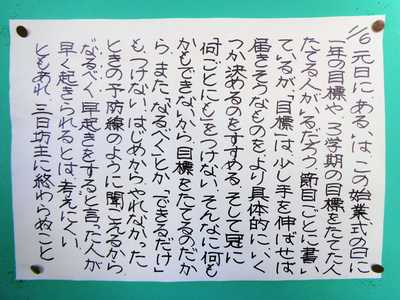 1/6 元日に、あるいは、この始業式の日に
一年の目標や、3学期の目標をたてた人
たてる人がいるだろう。節目ごとに書い
ているが、目標は、少し手を伸ばせば
届きそうなものを、より具体的に、いく
つか決めるのをすすめる。そして冠に
「何ごとにも」をつけない。そんなに何も
かもできないから目標をたてるのだか
ら。また、「なるべく」とか、「できるだけ」
も、つけない。はじめから、やれなかった
ときの予防線のように聞こえるから
「なるべく早起きをする」と言った人が
早く起きられるとは、考えにくい。
ともあれ、三日坊主に終わらぬこと